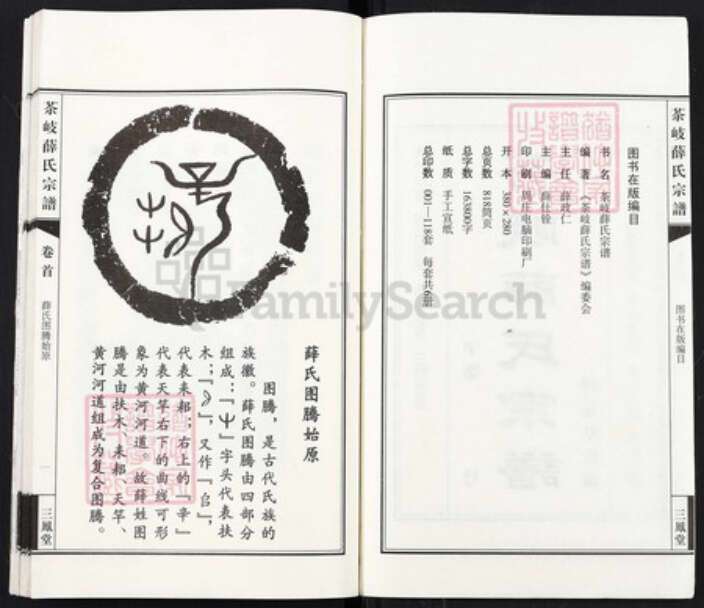 图书在版编目
书 名 茶岐薛氏宗谱
编 著 《茶岐薛氏宗谱》编委会
主 任 薛政仁
主 编 薛仕铨
印 刷 周庄电脑印刷厂
开 本 380×280
总页数 818筒页
总字数 163800字
纸 质 手工宣纸
总印数 001—118套 每套共6册
茶岐薛氏宗譜
图书在版编目
三鳳堂
薛氏图腾始原
图腾，是古代氏族的
族徽。薛氏图腾由四部分
组成：「屮」字头代表扶
木；「」，又作「㠯」，
代表耒耜；右上的「辛」
代表天竿右下的曲线可形
象为黄河河道。故薛姓图
腾是由扶木、耒耜、天竿、
黄河河道组成为复合图腾。
茶岐薛氏宗譜
卷首
薛氏图腾始原
一
三鳳堂
FamilySearch